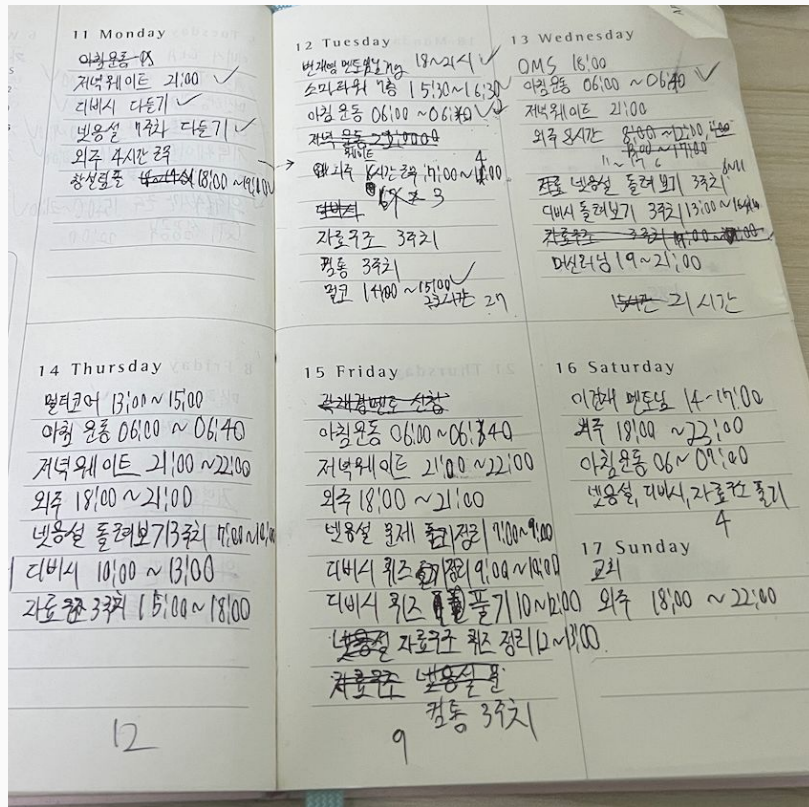 11 Monday
아침운동
저녁웨이트 21:00
디비시 다듣기
넷응설 7주차 다듣기
외주 4시간
18:00~19:00
12 Tuesday
멘토님 18~21시
소마타워 7층 15:30~16:30
아침운동 06:00~06:40
저녁운동
웨이트
외주 17:00~
디비시
자료구조 3주치
컴통 3주치
멀코 14:00~15:00
27
13 Wednesday
OMS 18:00
아침운동 06:00~06:40
저녁웨이트 21:00
외주 8시간 8:00~12:00
13:00~17:00
넷응설 돌려보기 3주치
디비시 돌려보기 3주치 13:00~
자료구조 3주치
머신러닝 19~21:00
15시간 21시간
14 Thursday
멀티코어 13:00~15:00
아침운동 06:00~06:40
저녁웨이트 21:00~22:00
외주 18:00~21:00
넷응설 돌려보기 3주치 7:00~10:00
디비시 10:00~13:00
자료구조 3주치 15:00~18:00
12
15 Friday
멘토 신청
아침운동 06:00~06:40
저녁웨이트 21:00~22:00
외주 18:00~21:00
넷응설 문제 정리 7:00~9:00
디비시 퀴즈 정리 9:00~10:00
디비시 퀴즈 풀기 10~12:00
넷응설 자료구조 퀴즈 정리 12~13:00
자료구조 넷응설 문
컴통 3주치
9
16 Saturday
멘토님 14-17:00
외주 18:00~23:00
아침운동 06~07:00
넷응설, 디비시, 자료구조 풀기
4
17 Sunday
교회
외주 18:00~22:00